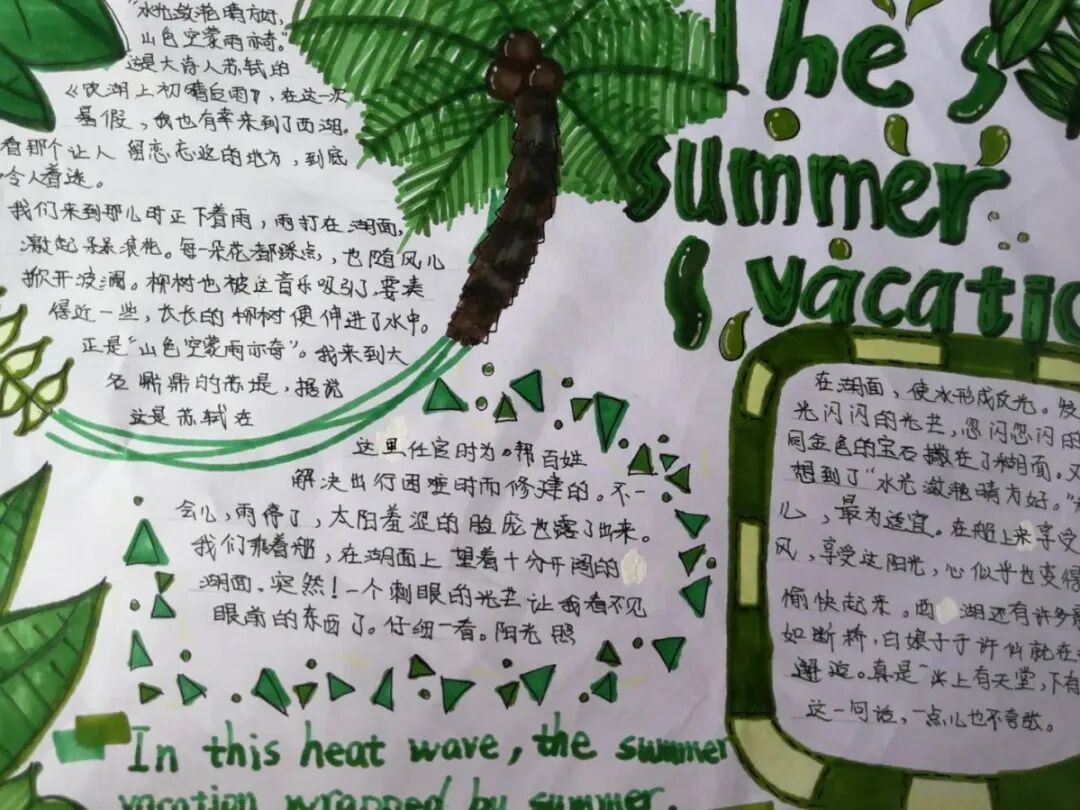 The's
summer
vacatio
"水光潋滟晴方好,
山色空蒙雨亦奇。"
这是大诗人苏轼的
《饮湖上初晴后雨》,在这一次
暑假,我也有幸来到了西湖。
看那个让人留恋忘返的地方,到底
令人着迷。
我们来到那儿时正下着雨,雨打在湖面,
激起朵朵浪花。每一朵花都踩点,也随风儿
掀开波澜。柳树也被这音乐吸引了,要凑
得近一些,长长的柳树便伸进了水中。
正是"山色空蒙雨亦奇"。我来到大
名鼎鼎的苏堤,据说
这是苏轼在
这里任官时为帮百姓
解决出行困难时而修建的。不一
会儿,雨停了,太阳羞涩的脸庞也露了出来。
我们乘着船,在湖面上望着十分开阔的
湖面。突然!一个刺眼的光芒让我看不见
眼前的东西了。仔细一看。阳光照
在湖面,使水形成反光。发
光闪闪的光芒,忽闪忽闪的
同金色的宝石撒在了湖面。又
想到了"水光潋滟晴方好。"
儿,最为适宜。在船上来享受
风,享受这阳光,心似乎也变得
愉快起来。西湖还有许多
如断桥,白娘子于许仙就在
邂逅。真是"上有天堂,下有
这一句话,一点儿也不夸张。
In this heat wave, the summer
vacation wrapped by summer.